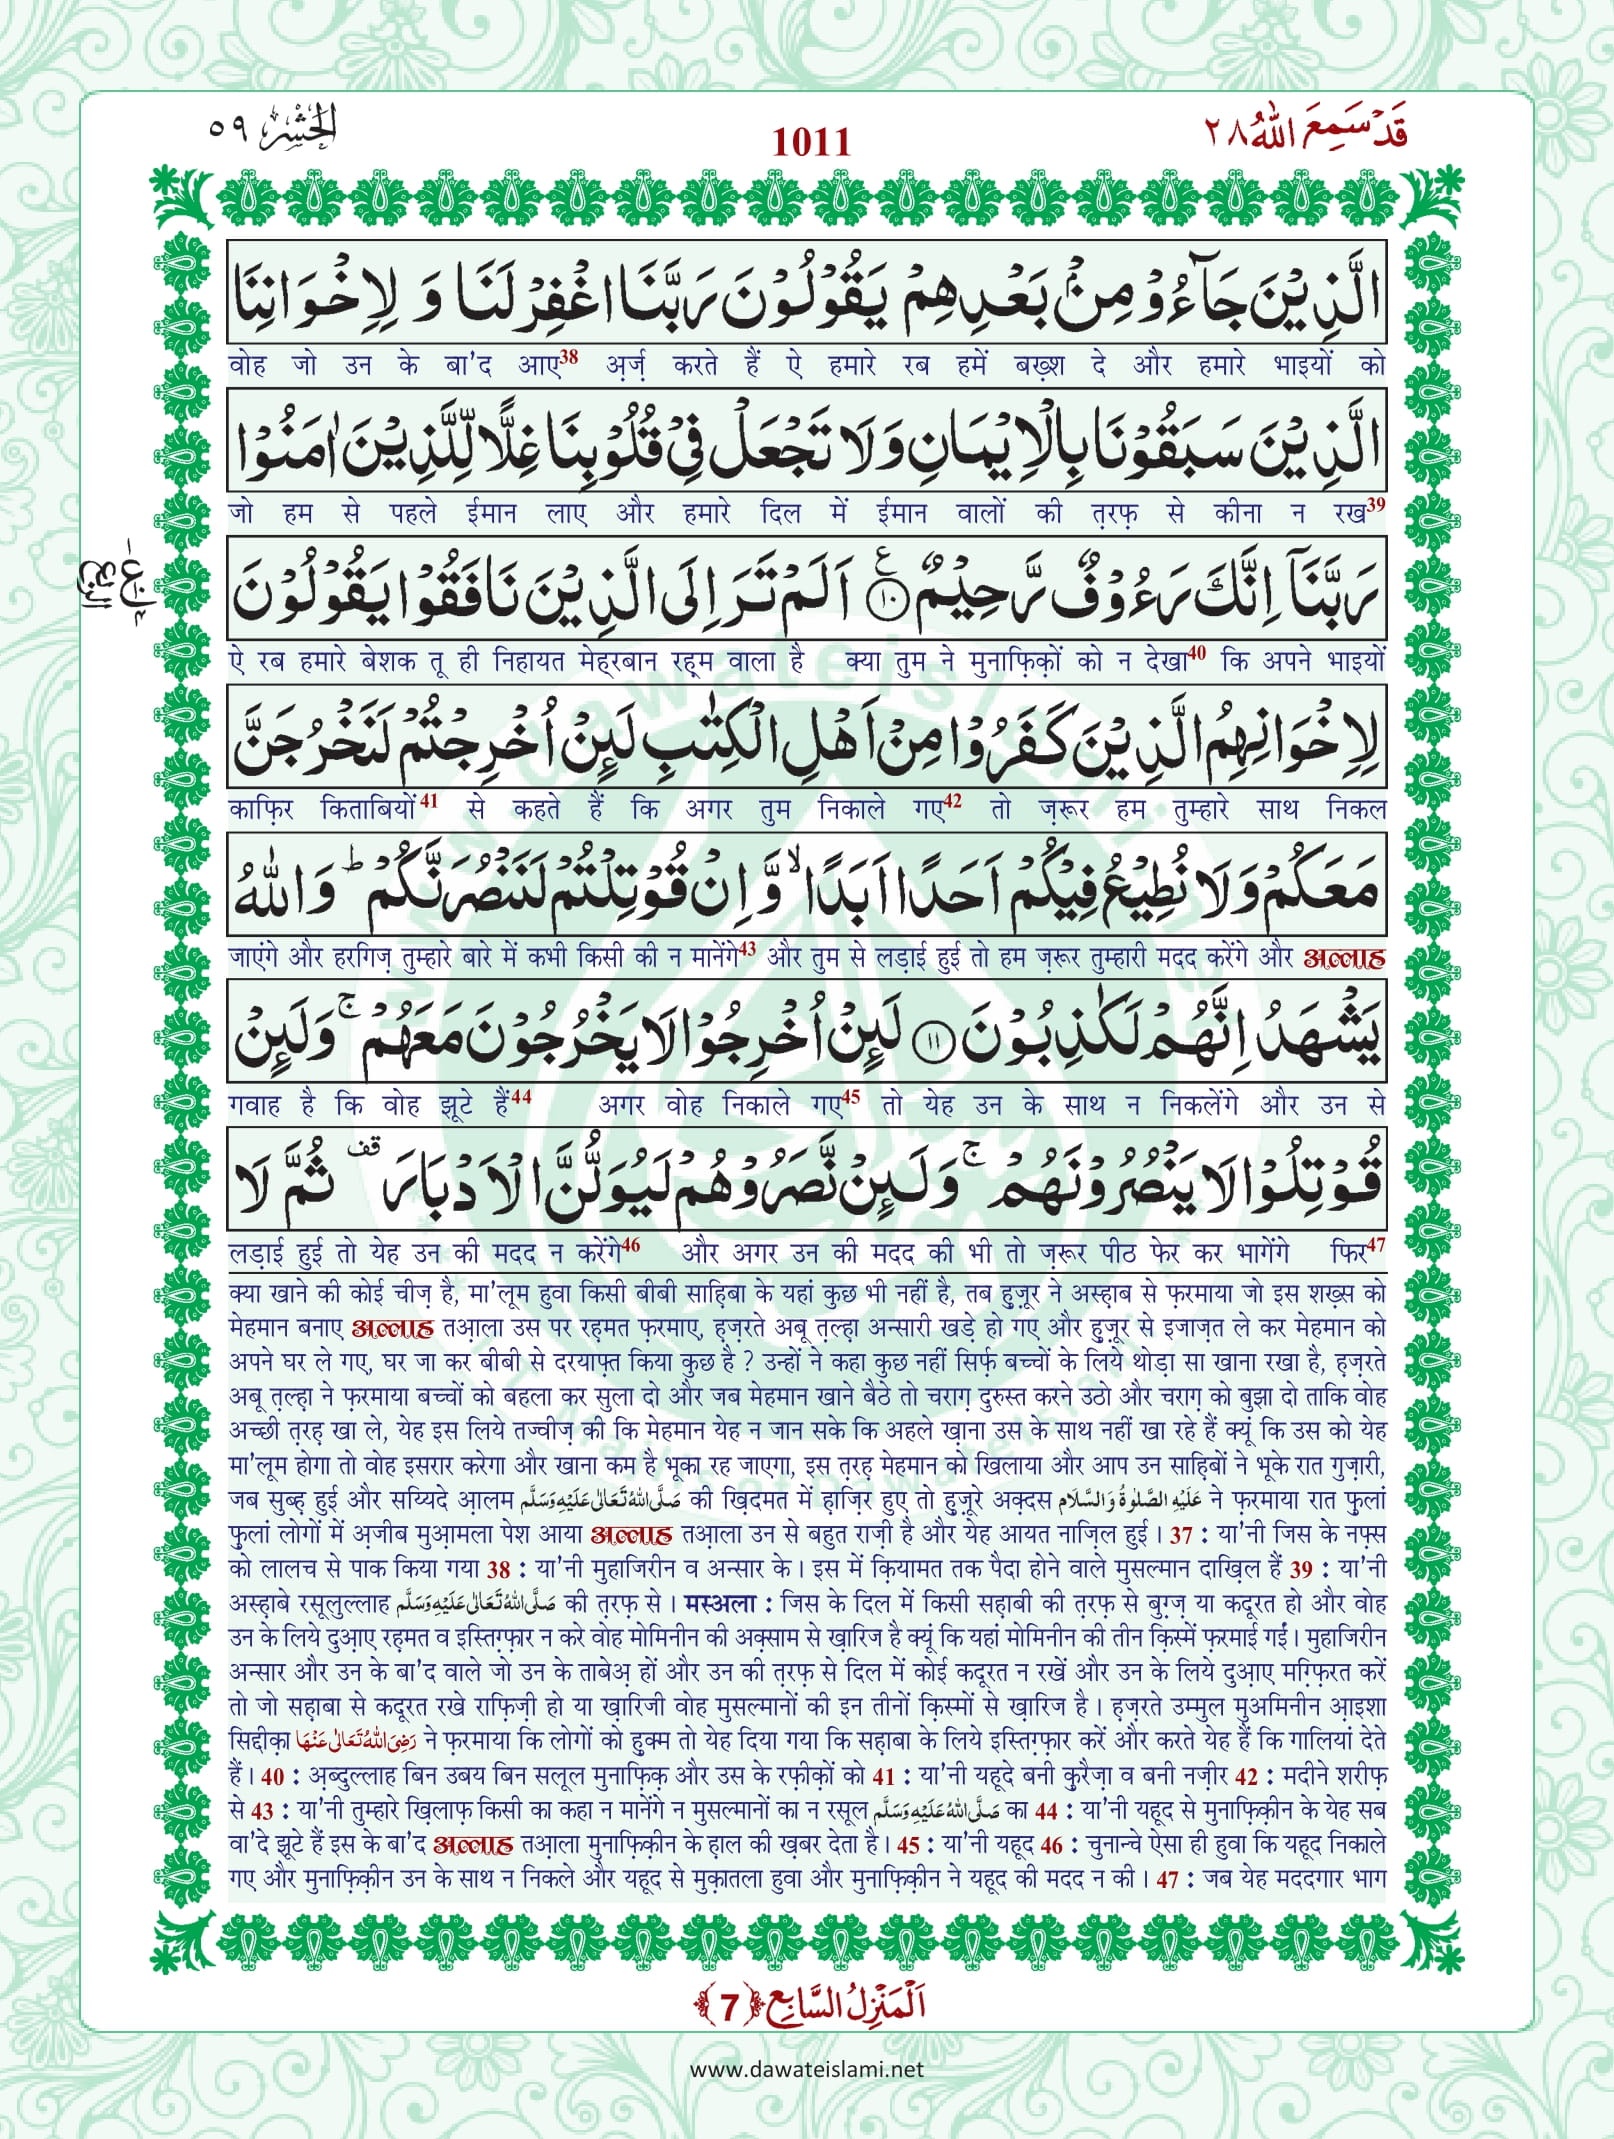 قَدْ سَمِعَ اللّٰهُ ٢٨
1011
الْحَشْر ٥٩
الَّذِیْنَ جَآءُوْ مِنْۢ بَعْدِهِمْ یَقُوْلُوْنَ رَبَّنَا اغْفِرْ لَنَا وَ لِاِخْوَانِنَا
वोह जो उन के बा'द आए38 अ़र्ज़ करते हैं ऐ हमारे रब हमें बख़्श दे और हमारे भाइयों को
الَّذِیْنَ سَبَقُوْنَا بِالْاِیْمَانِ وَ لَا تَجْعَلْ فِیْ قُلُوْبِنَا غِلًّا لِّلَّذِیْنَ اٰمَنُوْا
जो हम से पहले ईमान लाए और हमारे दिल में ईमान वालों की त़रफ़ से कीना न रख39
رَبَّنَاۤ اِنَّكَ رَءُوْفٌ رَّحِیْمٌ۠ ﴿١٠﴾ اَلَمْ تَرَ اِلَى الَّذِیْنَ نَافَقُوْا یَقُوْلُوْنَ
ऐ रब हमारे बेशक तू ही निहायत मेह्‌रबान रह़्म वाला है क्या तुम ने मुनाफ़िक़ों को न देखा40 कि अपने भाइयों
لِاِخْوَانِهِمُ الَّذِیْنَ كَفَرُوْا مِنْ اَهْلِ الْكِتٰبِ لَىِٕنْ اُخْرِجْتُمْ لَنَخْرُجَنَّ
काफ़िर किताबियों41 से कहते हैं कि अगर तुम निकाले गए42 तो ज़रूर हम तुम्हारे साथ निकल
مَعَكُمْ وَ لَا نُطِیْعُ فِیْكُمْ اَحَدًا اَبَدًاۙ وَّ اِنْ قُوْتِلْتُمْ لَنَنْصُرَنَّكُمْؕ وَ اللّٰهُ
जाएंगे और हरगिज़ तुम्हारे बारे में कभी किसी की न मानेंगे43 और तुम से लड़ाई हुई तो हम ज़रूर तुम्हारी मदद करेंगे और अल्लाह
یَشْهَدُ اِنَّهُمْ لَكٰذِبُوْنَ ﴿١١﴾ لَىِٕنْ اُخْرِجُوْا لَا یَخْرُجُوْنَ مَعَهُمْۚ وَ لَىِٕنْ
गवाह है कि वोह झूटे हैं44 अगर वोह निकाले गए45 तो येह उन के साथ न निकलेंगे और उन से
قُوْتِلُوْا لَا یَنْصُرُوْنَهُمْۚ وَ لَىِٕنْ نَّصَرُوْهُمْ لَیُوَلُّنَّ الْاَدْبَارَ قف ثُمَّ لَا
लड़ाई हुई तो येह उन की मदद न करेंगे46 और अगर उन की मदद की भी तो ज़रूर पीठ फेर कर भागेंगे फिर47
क्या खाने की कोई चीज़ है, मा'लूम हुवा किसी बीबी साहि़बा के यहां कुछ भी नहीं है, तब हु़ज़ूर ने अस्ह़ाब से फ़रमाया जो इस शख़्स को
मेहमान बनाए अल्लाह तआ़ला उस पर रह़मत फ़रमाए, ह़ज़रते अबू त़ल्ह़ा अन्सारी खड़े हो गए और हु़ज़ूर से इजाज़त ले कर मेहमान को
अपने घर ले गए, घर जा कर बीबी से दरयाफ़्त किया कुछ है ? उन्हों ने कहा कुछ नहीं सिर्फ़ बच्चों के लिये थोड़ा सा खाना रखा है, ह़ज़रते
अबू त़ल्ह़ा ने फ़रमाया बच्चों को बहला कर सुला दो और जब मेहमान खाने बैठे तो चराग़ दुरुस्त करने उठो और चराग़ को बुझा दो ताकि वोह
अच्छी त़रह़ खा ले, येह इस लिये तज्वीज़ की कि मेहमान येह न जान सके कि अहले ख़ाना उस के साथ नहीं खा रहे हैं क्यूं कि उस को येह
मा'लूम होगा तो वोह इसरार करेगा और खाना कम है भूका रह जाएगा, इस त़रह़ मेहमान को खिलाया और आप उन साहि़बों ने भूके रात गुज़ारी,
जब सुब्ह़ हुई और सय्यिदे आ़लम صَلَّى اللّٰهُ تَعَالٰى عَلَيْهِ وَسَلَّم की ख़िदमत में ह़ाज़िर हुए तो हु़ज़ूरे अक़्दस عَلَيْهِ الصَّلٰوةُ وَالسَّلَام ने फ़रमाया रात फ़ुलां
फ़ुलां लोगों में अ़जीब मुआ़मला पेश आया अल्लाह तआ़ला उन से बहुत राज़ी है और येह आयत नाज़िल हुई । 37 : या'नी जिस के नफ़्स
को लालच से पाक किया गया 38 : या'नी मुहाजिरीन व अन्सार के । इस में क़ियामत तक पैदा होने वाले मुसल्मान दाख़िल हैं 39 : या'नी
अस्ह़ाबे रसूलुल्लाह صَلَّى اللّٰهُ تَعَالٰى عَلَيْهِ وَسَلَّم की त़रफ़ से । मस्अला : जिस के दिल में किसी सह़ाबी की त़रफ़ से बुग़्ज़ या कदूरत हो और वोह
उन के लिये दुआ़ए रह़मत व इस्तिग़्फ़ार न करे वोह मोमिनीन की अक़्साम से ख़ारिज है क्यूं कि यहां मोमिनीन की तीन क़िस्में फ़रमाई गईं । मुहाजिरीन
अन्सार और उन के बा'द वाले जो उन के ताबेअ़ हों और उन की त़रफ़ से दिल में कोई कदूरत न रखें और उन के लिये दुआ़ए मग़्फ़िरत करें
तो जो सह़ाबा से कदूरत रखे राफ़िज़ी हो या ख़ारिजी वोह मुसल्मानों की इन तीनों क़िस्मों से ख़ारिज है । ह़ज़रते उम्मुल मुअमिनीन आ़इशा
सिद्दीक़ा رَضِىَ اللّٰهُ تَعَالٰى عَنْهَا ने फ़रमाया कि लोगों को हुक्म तो येह दिया गया कि सह़ाबा के लिये इस्तिग़्फ़ार करें और करते येह हैं कि गालियां देते
हैं । 40 : अ़ब्दुल्लाह बिन उबय बिन सलूल मुनाफ़िक़ और उस के रफ़ीक़ों को 41 : या'नी यहूदे बनी कु़रैज़ा व बनी नज़ीर 42 : मदीने शरीफ़
से 43 : या'नी तुम्हारे ख़िलाफ़ किसी का कहा न मानेंगे न मुसल्मानों का न रसूल صَلَّى اللّٰهُ عَلَيْهِ وَسَلَّم का 44 : या'नी यहूद से मुनाफ़िक़ीन के येह सब
वा'दे झूटे हैं इस के बा'द अल्लाह तआ़ला मुनाफ़िक़ीन के ह़ाल की ख़बर देता है । 45 : या'नी यहूद 46 : चुनान्चे ऐसा ही हुवा कि यहूद निकाले
गए और मुनाफ़िक़ीन उन के साथ न निकले और यहूद से मुक़ातला हुवा और मुनाफ़िक़ीन ने यहूद की मदद न की । 47 : जब येह मददगार भाग
اَلْمَنْزِلُ السَّابِع ﴿7﴾
www.dawateislami.net